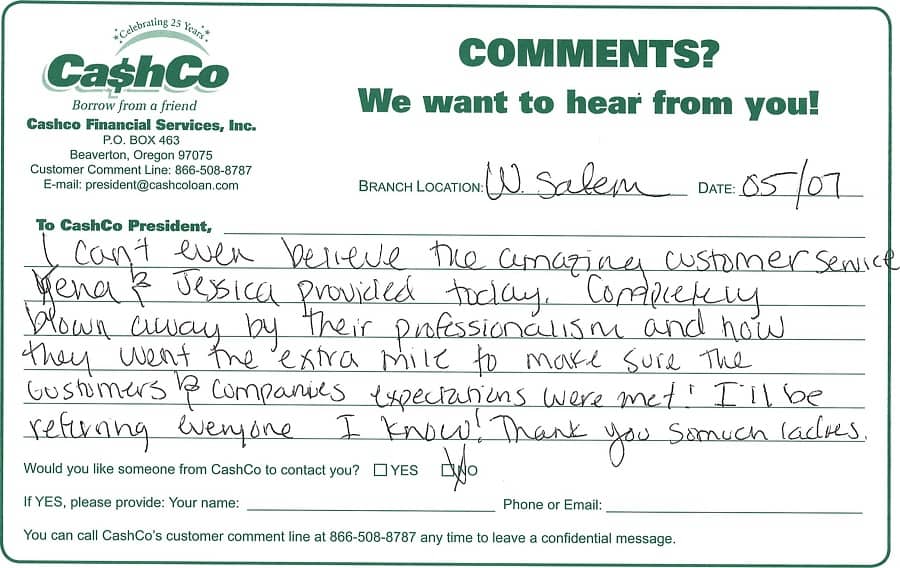 Celebrating 25 Years
Ca$hCo
Borrow from a friend
Cashco Financial Services, Inc.
P.O. BOX 463
Beaverton, Oregon 97075
Customer Comment Line: 866-508-8787
E-mail: president@cashcoloan.com
COMMENTS?
We want to hear from you!
BRANCH LOCATION: W. Salem DATE: 05/07
To CashCo President,
I can't even believe the amazing customer service
Yena & Jessica provided today. Completely
blown away by their professionalism and how
they went the extra mile to make sure the
customers & companies expectations were met! I'll be
referring everyone I know! Thank you somuch ladies.
Would you like someone from CashCo to contact you? ☐ YES ☑ NO
If YES, please provide: Your name: Phone or Email:
You can call CashCo's customer comment line at 866-508-8787 any time to leave a confidential message.